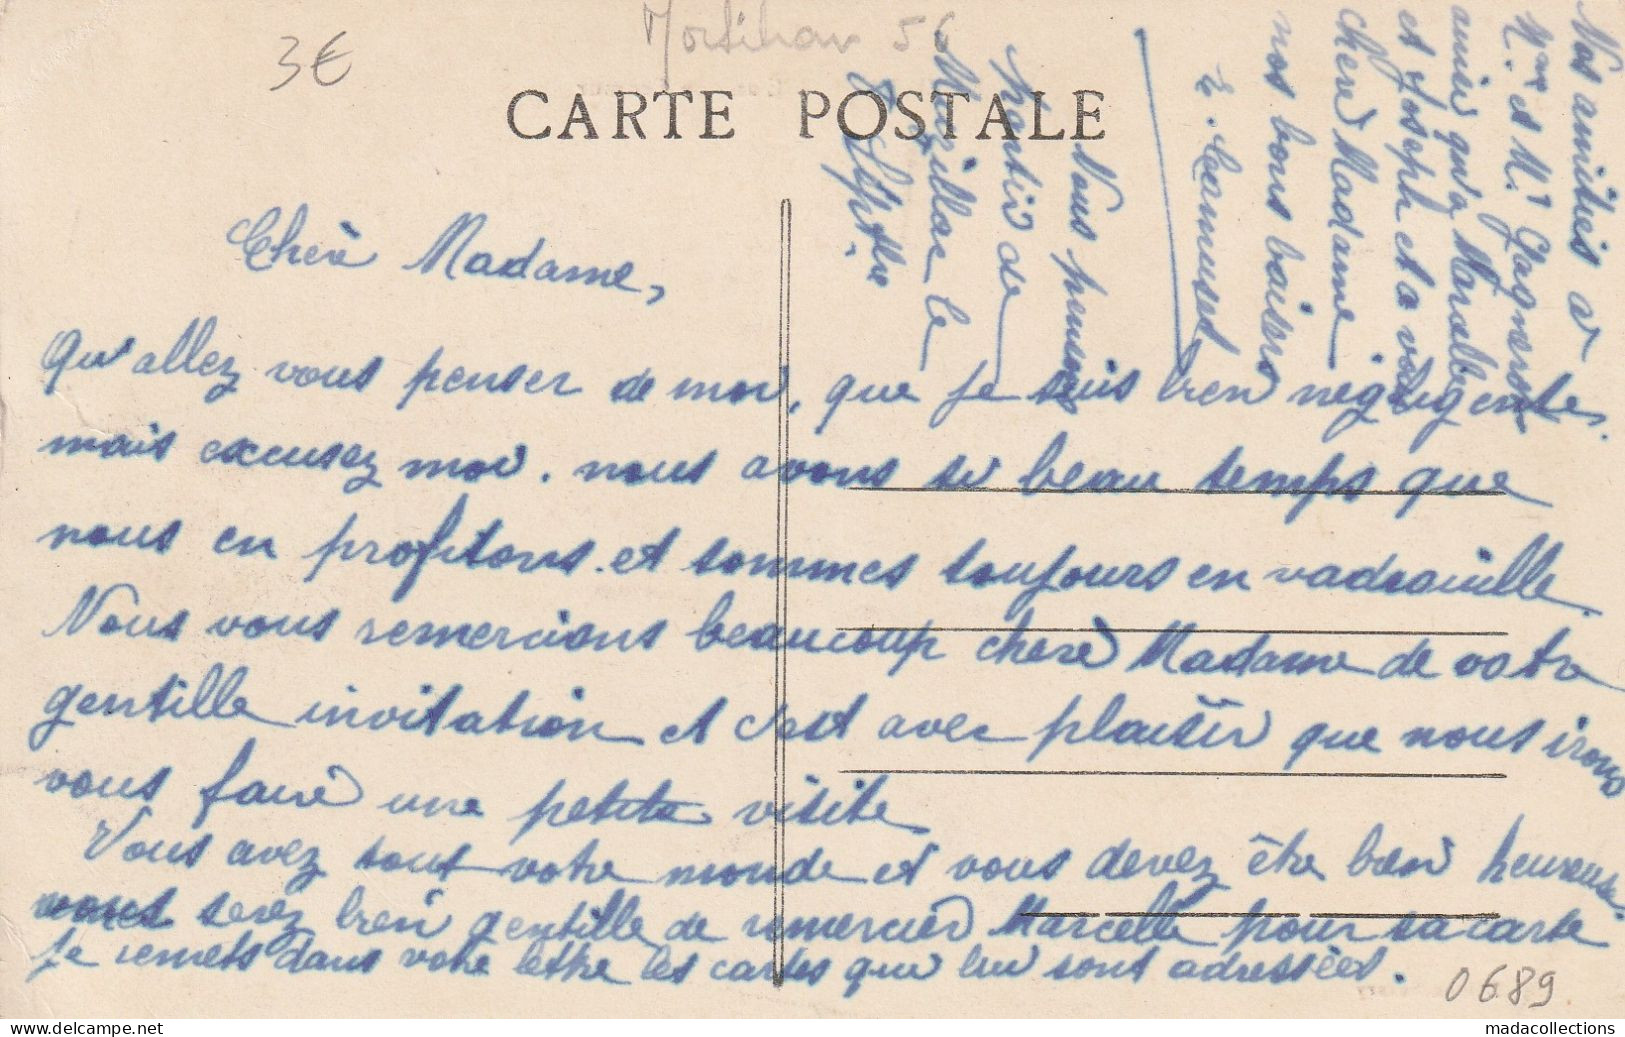 3€
Morbihan 56
CARTE POSTALE
Chère Madame,
Qu'allez vous penser de moi, que je suis bien négligente,
mais excusez moi. nous avons si beau temps que
nous en profitons et sommes toujours en vadrouille.
Nous vous remercions beaucoup chère Madame de votre
gentille invitation et c'est avec plaisir que nous irons
vous faire une petite visite
Vous avez tout votre monde et vous devez être bien heureuse.
vous serez bien gentille de remercier Marcelle pour sa carte
Je remets dans votre lettre les cartes que lui sont adressées.
Nos amitiés à
Mme et Mr Gagneron
ainsi qu'à Marcelle
et Joseph et à vous
chère Madame
nos bons baisers
E. Camuset
Nous pensons
partir de
Muzillac le
8 Septbre
0689
madacollections
www.delcampe.net